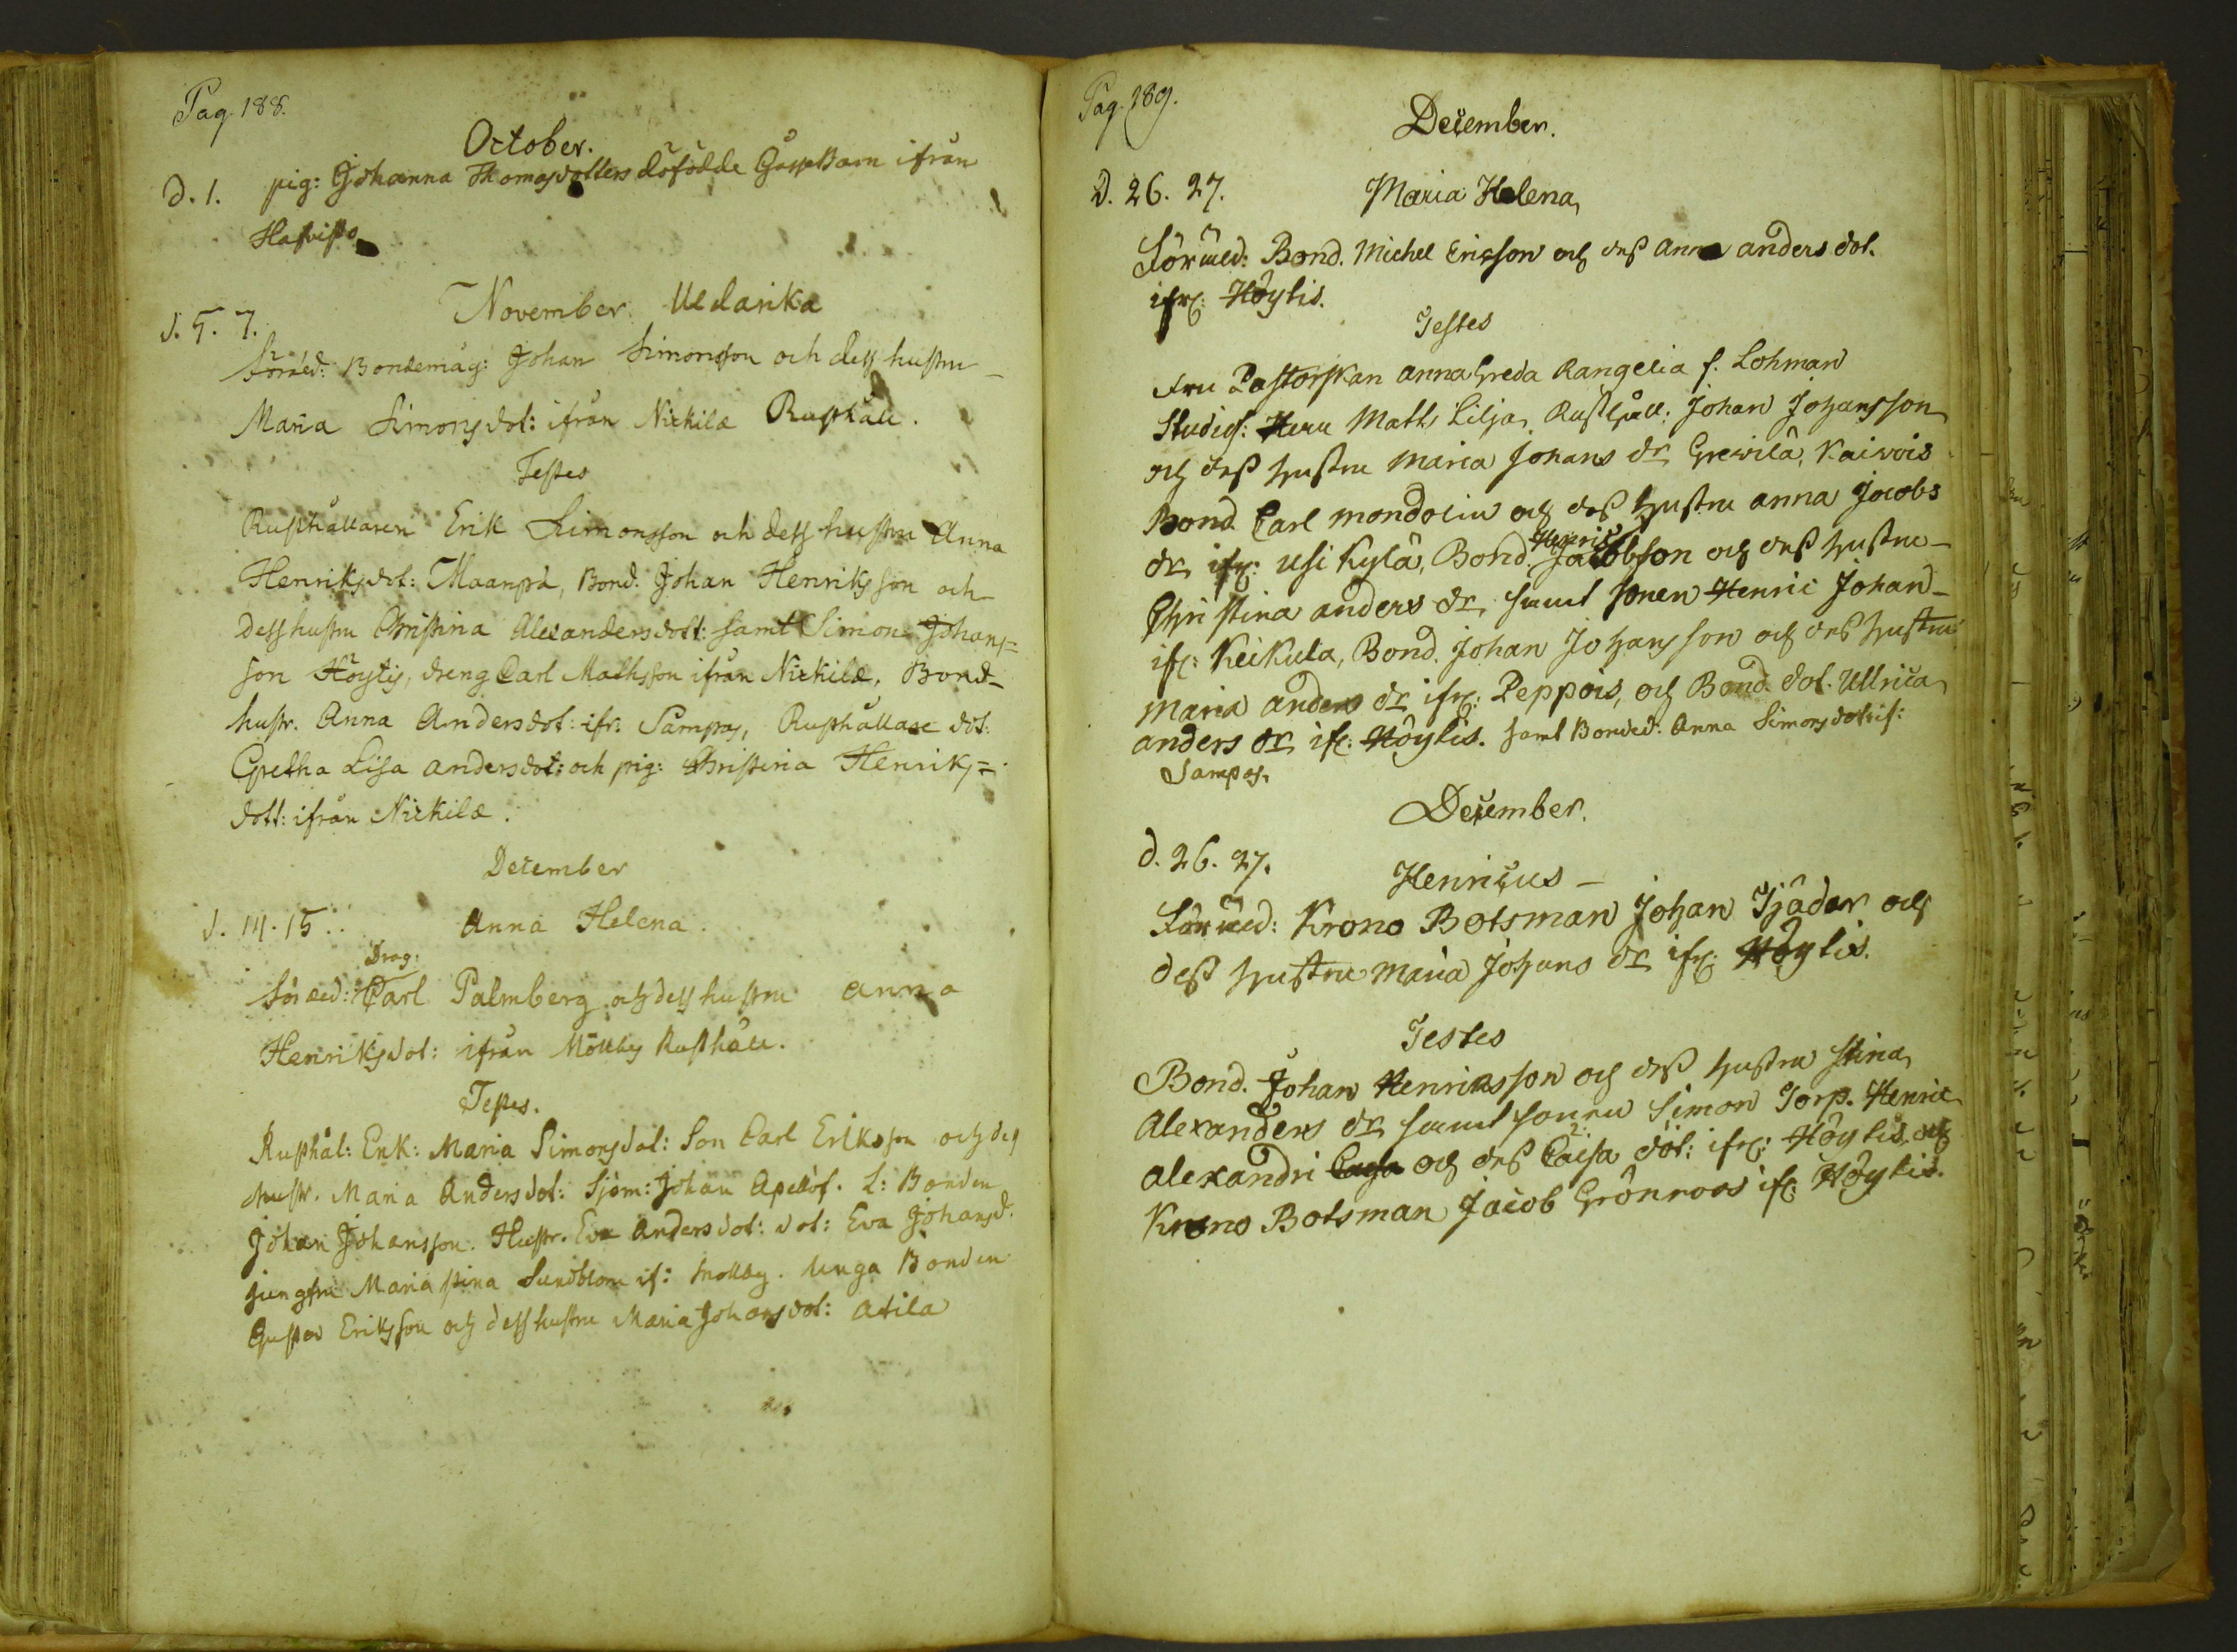 Pag. 188.
October.
d. 1. pig: Johanna Thomasdotters döfödde Gåsse Barn ifrån
November. Uldarika
d. 5. 7.
Föräld: Bondemåg: Johan Simonsson och dess hustru
Maria Simonsdot: ifrån Nickilä Rusthåll.
Testes
Rusthållaren Erik Simonsson och dess hustru Anna
Henriksdot: Maanpä, Bond. Johan Henriksson och
dess hustru Christina Alexandersdott: samt Simon Johans=
son Höytis, dreng Carl Mathsson ifrån Nickilä, Bond-
hustr. Anna Andersdot: ifr: Sampos, Rusthållare dot:
Gretha Lisa andersdot: och pig: Christina Henriks=
dott: ifrån Nickilä.
December
d. 14. 15. Anna Helena.
Drag:
Föräld: Carl Palmberg och dess hustru anna
Henriksdot: ifrån Möllby Rusthåll.
Testes.
Rusthål: Enk: Maria Simonsdot: Son Carl Eriksson och des
hustr. Maria Andersdot: Sjöm: Johan Apellöf. L: Bonden
Johan Johansson. Hustr. Eva Andersdot: dot: Eva Johansd.
jungfru Maria stina Sundblom if: Mollby. Unga Bonden
Gustav Eriksson och dess hustru Maria Johansdot: Atila
Pag. 189.
December.
D. 26. 27. Maria Helena,
Föräld: Bond. Michel Ericson och dess Anna anders dot.
ifr: Höytis.
Testes
Fru Pastorskan anna Greda Rangelia f. Lohman
Studios: Herr Math, Lilja, Rusthåll: Johan Johansson
och dess hustru Maria Johans dr Grewilä, Kaivois
Bond. Carl mondolin och dess hustru anna Jacobs
dr ifr: Usi Kylä, Bond. Henric Jacobson och dess hustru
Christina anders dr, samt sonen Henric Johan-
if: Keikula, Bond. Johan Johansson och dess hustru
maria anders dr ifr: Peppois, och Bond. dot. Ullrica
anders dr if: Höytis. samt Bonded: Anna Simonsdot if:
Sampos.
December.
d. 26. 27.
Henricus
Föräld: Krono Botsman Johan Tjäder och
dess hustru maria Johans dr ifr: Höytis.
Testes
Bond. Johan Henricsson och dess hustru stina
Alexanders dr samt sonen Simon Torp. Henric
alexandri Caysa och dess 2: Caisa dot: ifr: Höytis och
Krono Botsman Jacob Grönroos if: Höytis.